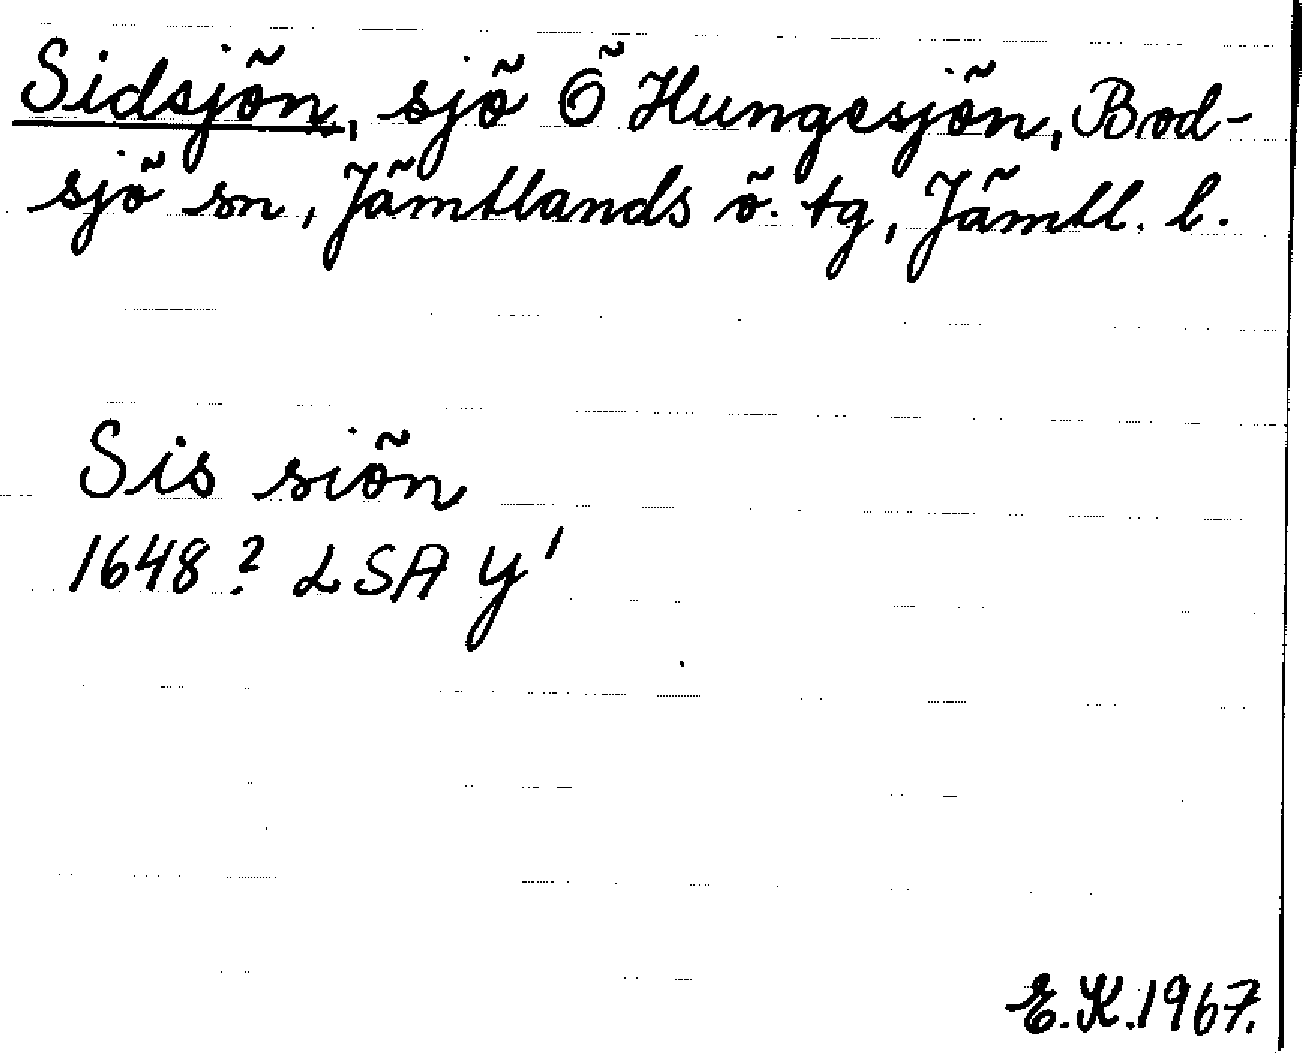 Sidsjön, sjö Ö Hungesjön, Bod-
sjö sn, Jämtlands ö. tg, Jämtl. l.
Sis siön
1648? LSA Y'
E.K.1967.